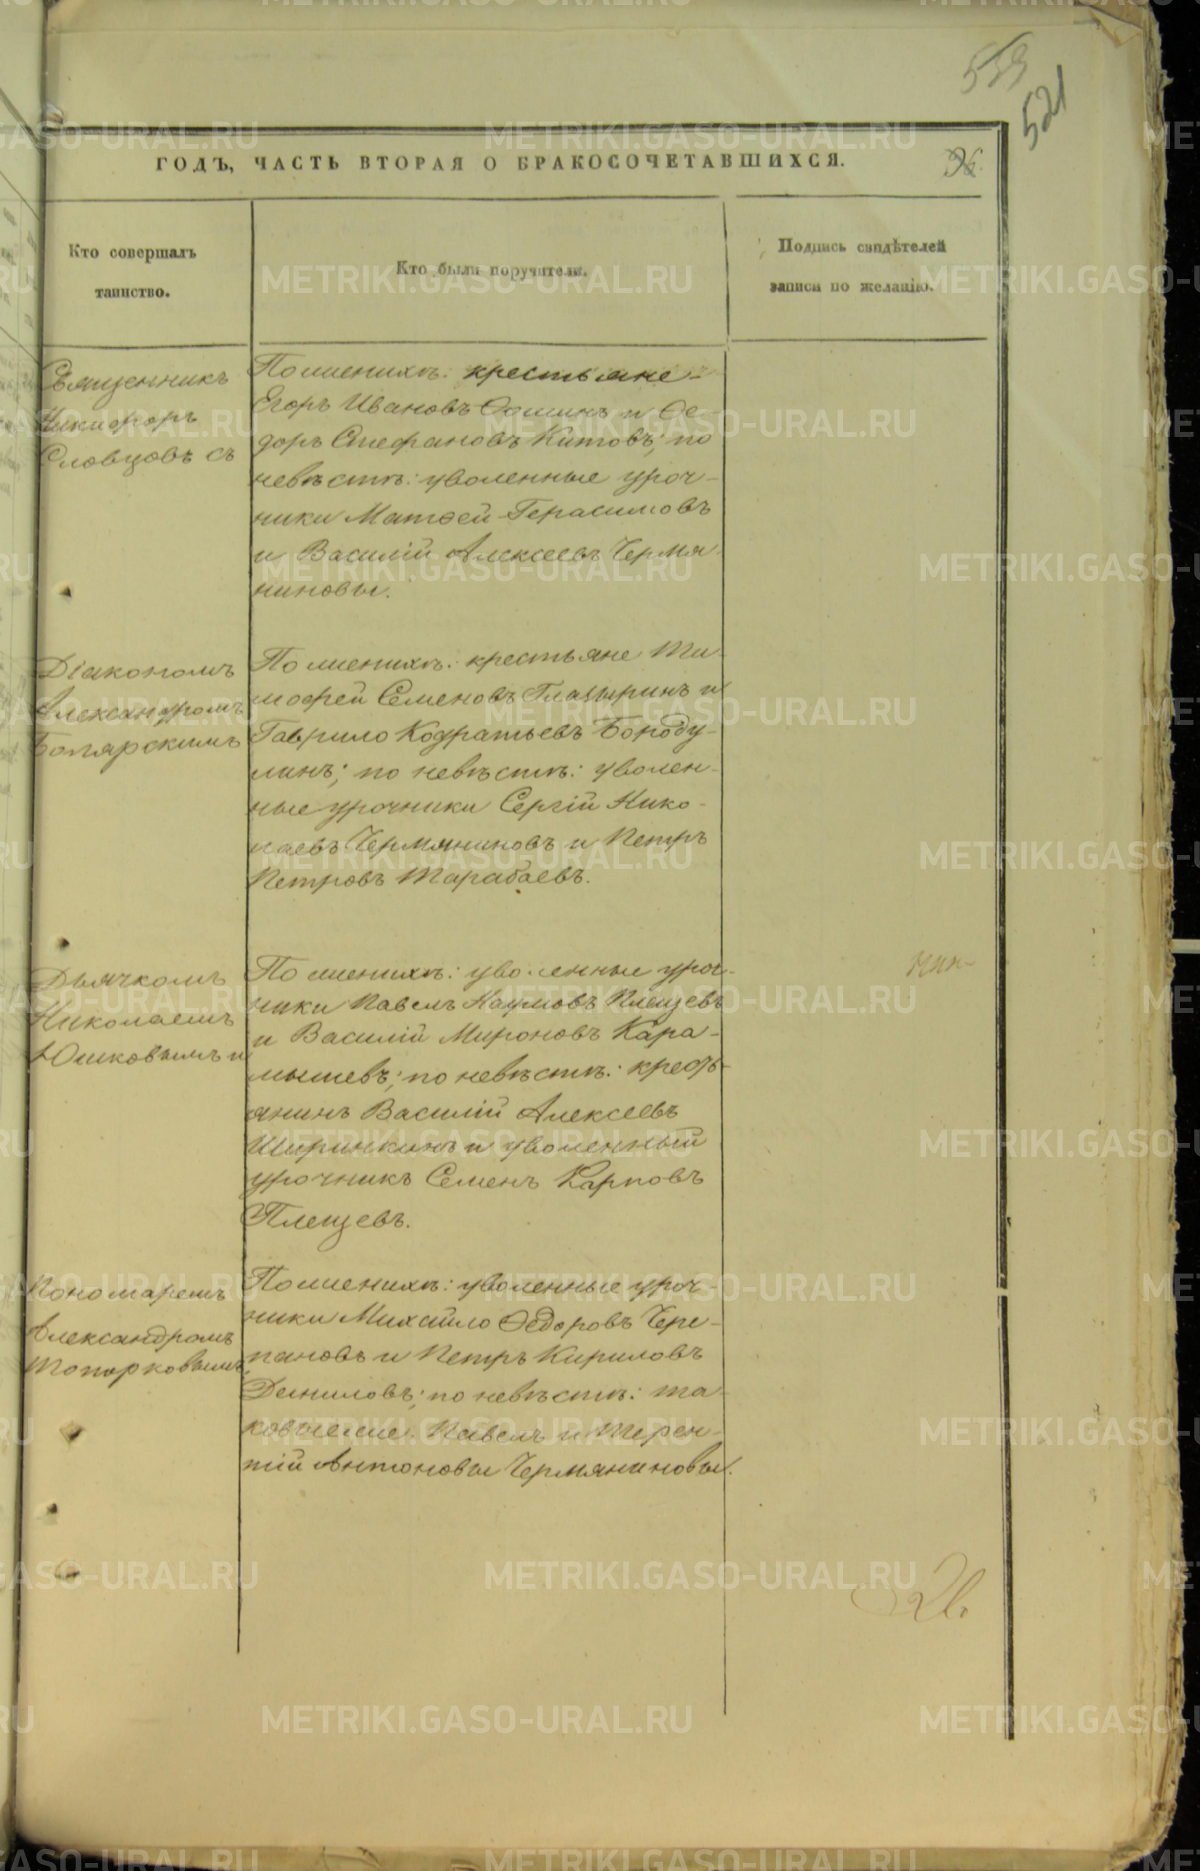 539
521
ГОДЪ, ЧАСТЬ ВТОРАЯ О БРАКОСОЧЕТАВШИХСЯ.
Кто совершалъ
таинство.
Кто были поручители.
Подпись свидѣтелей
записи по желанію.
Священникъ
Никифоръ
Словцовъ съ
По женихѣ: крестьяне
Егоръ Ивановъ Ѳоминъ и Ѳе-
доръ Стефановъ Китовъ; по
невѣстѣ: уволенные уроч-
ники Матѳей Герасимовъ
и Василій Алексеевъ Чермя-
ниновы.
Діакономъ
Александромъ
Боярскимъ
По женихѣ: крестьяне Ти-
мофей Семеновъ Глазыринъ и
Гаврило Кодратьевъ Бороду-
линъ; по невѣстѣ: уволен-
ные урочники Сергій Нико-
лаевъ Чермяниновъ и Петръ
Петровъ Тарабаевъ.
Дьячкомъ
Николаемъ
Юшковымъ и
По женихѣ: уволенные уроч-
ники Павелъ Наумовъ Плещевъ
и Василій Мироновъ Кара-
мышевъ; по невѣстѣ: кресть-
янинъ Василій Алексеевъ
Ширинкинъ и уволенный
урочникъ Семенъ Карповъ
Плещевъ.
Пономаремъ
Александромъ
Топорковымъ.
По женихѣ: уволенные уроч-
ники Михайло Ѳедоровъ Чере-
пановъ и Петръ Кириловъ
Даниловъ; по невѣстѣ: та-
ковые же Павелъ и Терен-
тий Антоновы Чермяниновы.
METRIKI.GASO-URAL.RU